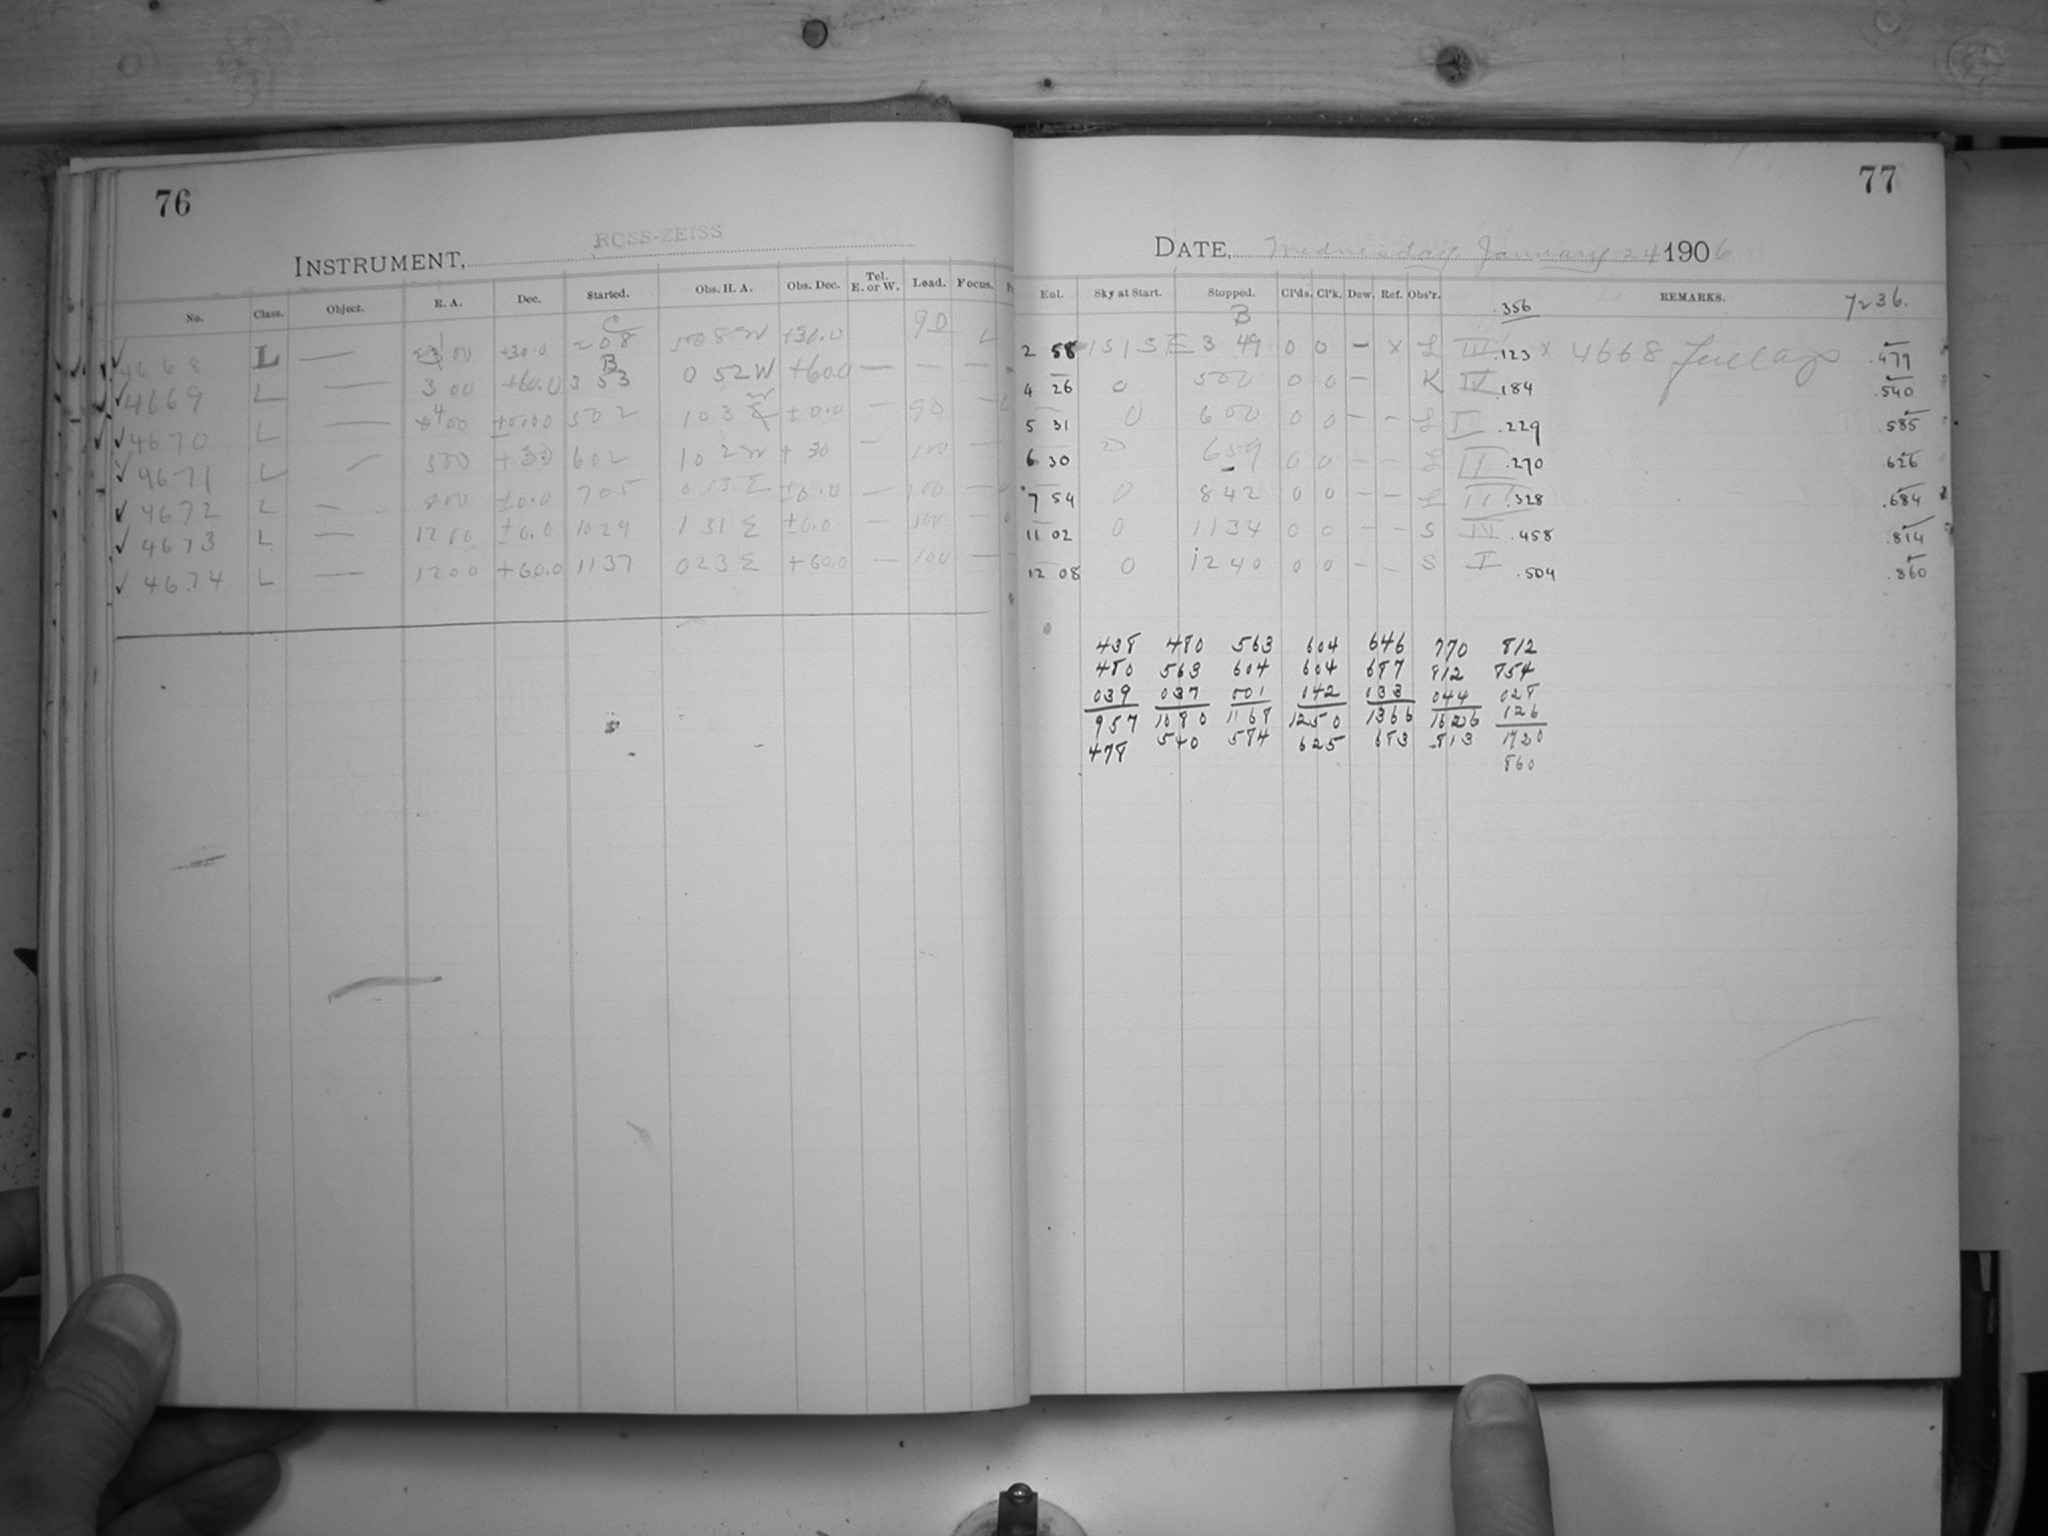 76
ROSS-ZEISS
INSTRUMENT,
No. Class. Object. R. A. Dec. Started. Obs. H. A. Obs. Dec. Tel. E. or W. Load. Focus.
C
4668 L — 00 +30.0 208 W +30.0 90
B
4669 L — 3 00 +60.0 353 0 52 W +60.0 — — —
4670 L — 4 00 ±0.0 502 1 03 W ±0.0 — 90 —
4671 L — 500 +30 602 1 02 W +30 — 100 —
4672 L — ±0.0 705 E ±0.0 — 100 —
4673 L — 1200 ±0.0 1029 1 31 E ±0.0 — 100 —
4674 L — 1200 +60.0 1137 0 23 E +60.0 — 100 —
77
DATE, Wednesday January 24 1906
Ent. Sky at Start. Stopped. Cl'ds. Cl'k. Dew. Ref. Obs'r. .356 REMARKS. 7236.
B
2 58 1S 1S E 3 49 0 0 — X L III .123 X 4668 .479
4 26 0 502 0 0 — K IV .184 .540
5 31 0 600 0 0 — — L .229 .585
6 30 0 659 0 0 — — L II .270 .626
7 54 0 842 0 0 — — L III .328 .684
11 02 0 1134 0 0 — — S IV .458 .814
12 08 0 1240 0 0 — — S V .504 .860
438 480 563 604 646 770 812
480 563 604 604 687 812 754
039 037 001 142 133 044 028
957 1080 1168 1250 1366 1626 126
478 540 584 625 683 .813 1720
860